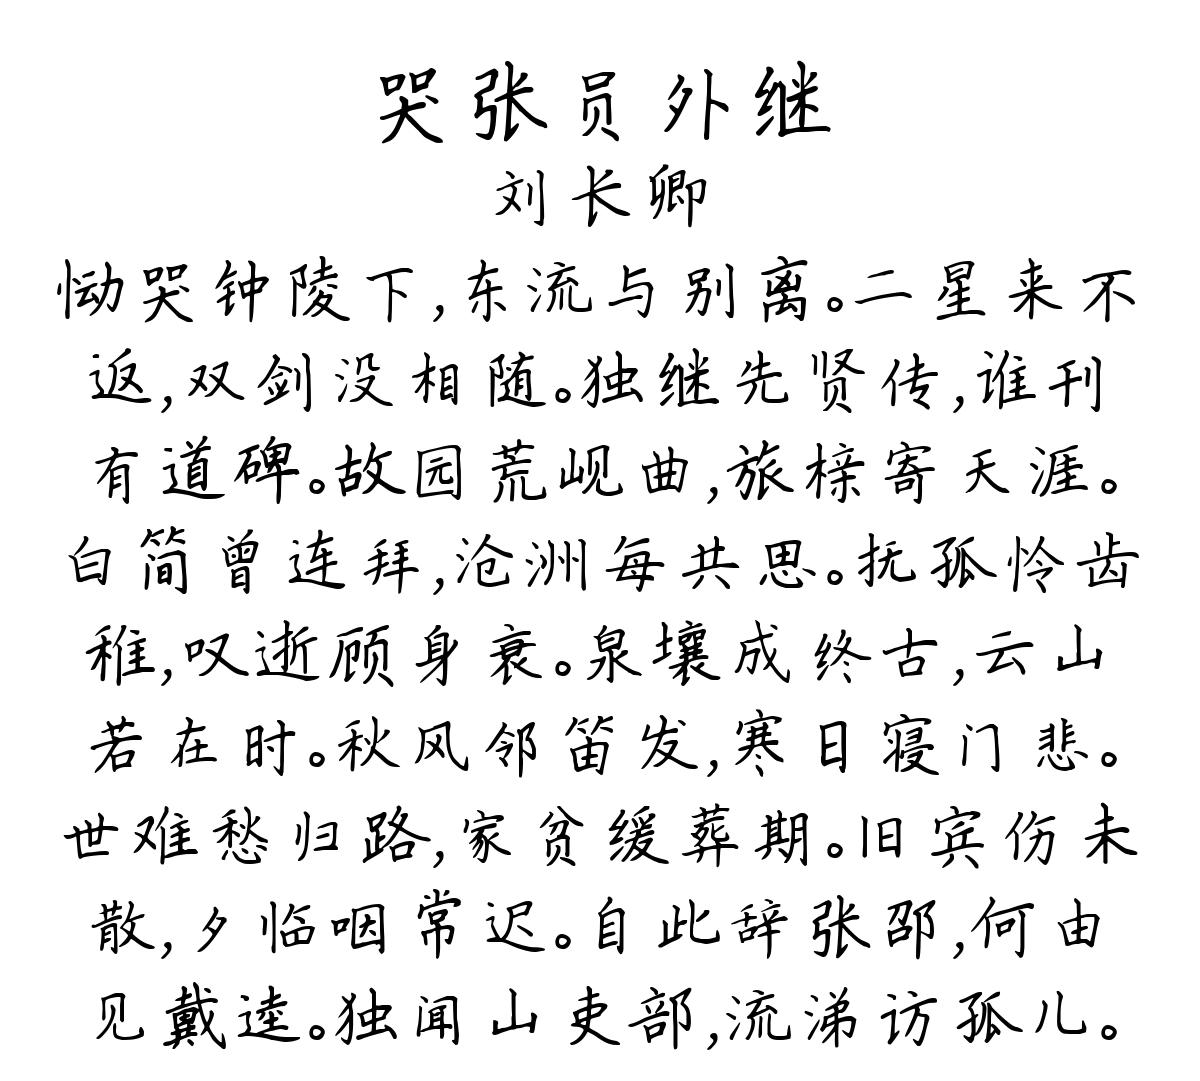 哭张员外继
刘长卿
恸哭钟陵下,东流与别离。二星来不
返,双剑没相随。独继先贤传,谁刊
有道碑。故园荒岘曲,旅榇寄天涯。
白简曾连拜,沧洲每共思。抚孤怜齿
稚,叹逝顾身衰。泉壤成终古,云山
若在时。秋风邻笛发,寒日寝门悲。
世难愁归路,家贫缓葬期。旧宾伤未
散,夕临咽常迟。自此辞张邵,何由
见戴逵。独闻山吏部,流涕访孤儿。